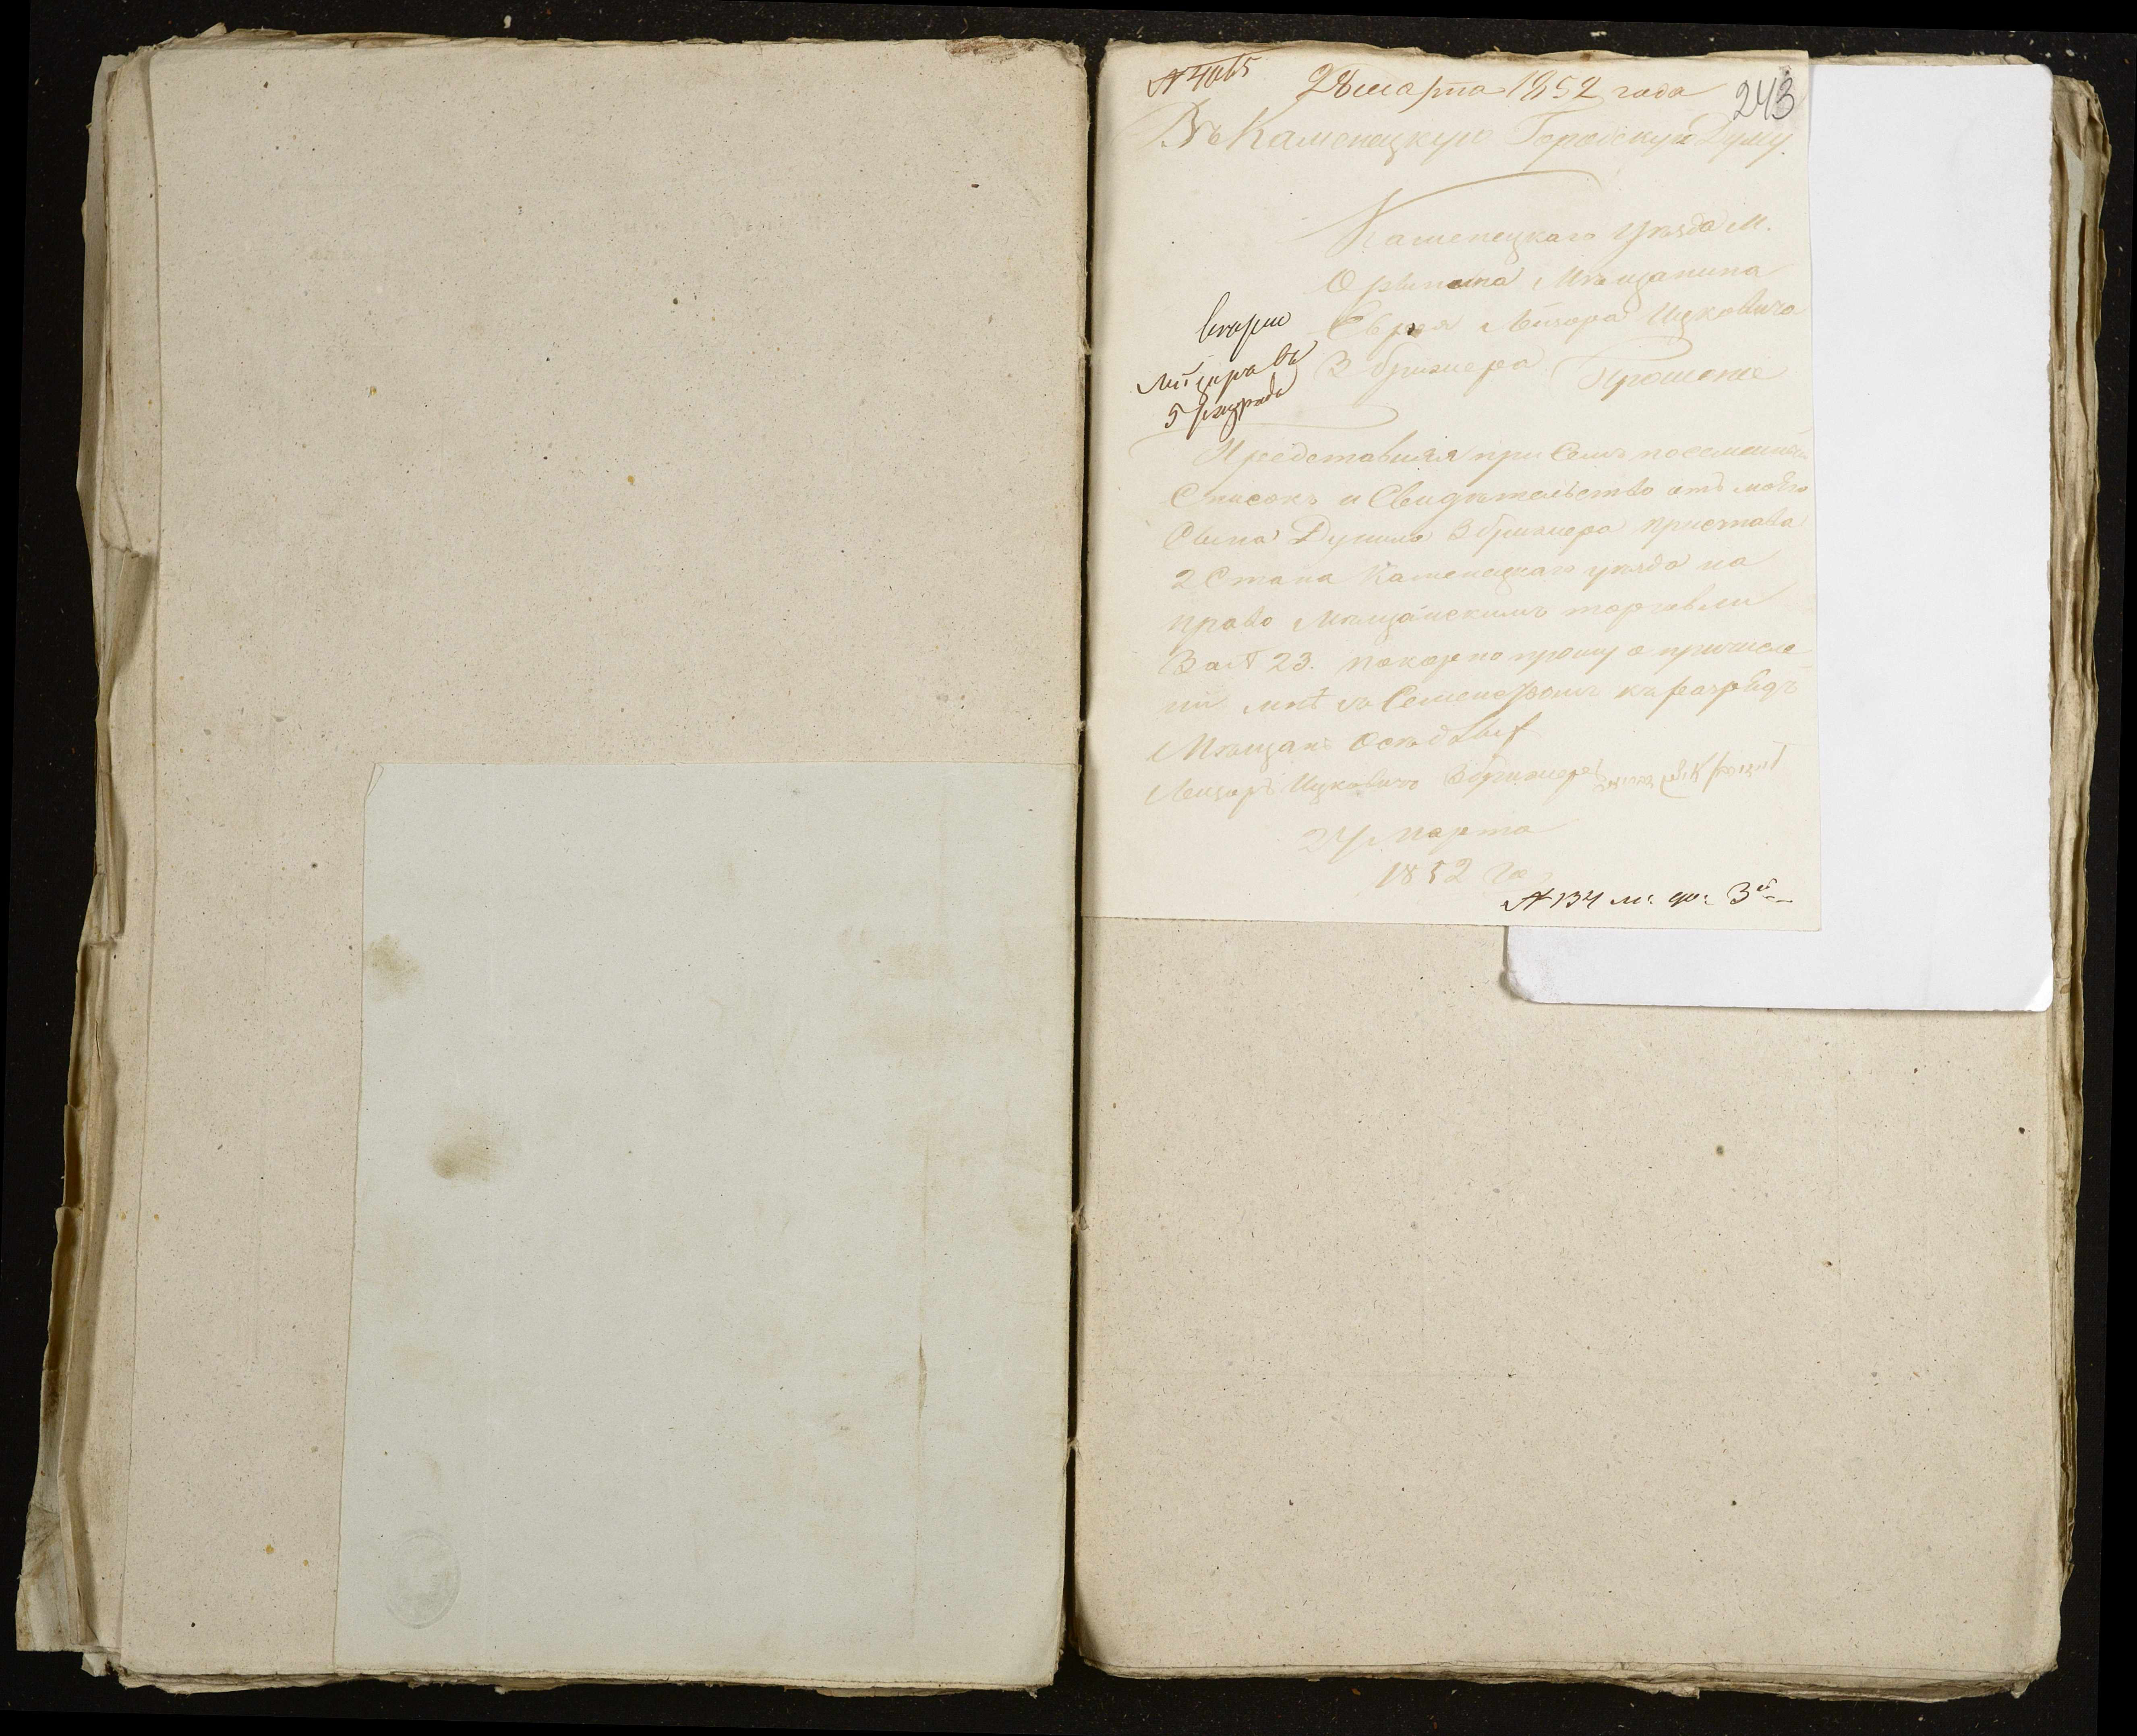 № 4065 28 марта 1852 года 243
Въ Каменецкую Городскую Думу.
Каменецкаго уѣзда М.
Орынина Мѣщанина
Еврея Лейзора Ицковича
Збрижера Прошеніе
5 разряда
Представляя при Семъ посемейный
Списокъ и Свидѣтельство отъ моего
Сына Збрижера пристава
2 Стана Каменецкаго уѣзда на
право Мѣщанскимъ торговли
За № 23. покорно прошу о причисле
ніи мнѣ съ Семействомъ къ разрѣдъ
Мѣщанъ Осѣдлыхъ
Лейзоръ Ицковичъ Збрижеръ
24 Марта
1852 го
№ 134